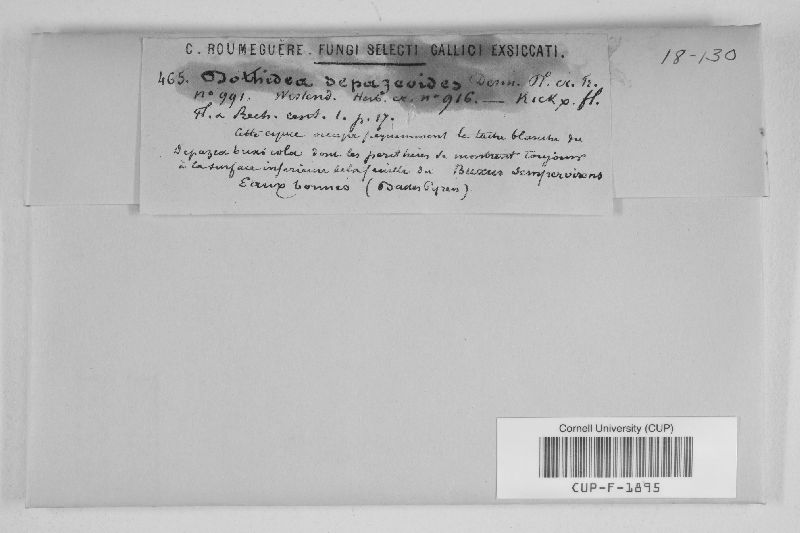 C. ROUMEGUÈRE. FUNGI SELECTI GALLICI EXSICCATI.
18-130
465. Dothidea depazeoides Desm. Pl. cr. Fr.
nº 991. Westend. Herb. cr. nº 916. — Kickx. fl.
Fl. a Rech. cent. 1. p. 17.
Cette espèce occupe fréquemment la tache blanche du
Depazea buxicola dont les perithèces se montrent toujours
à la surface inférieure de la feuille du Buxus sempervirens
Eaux bonnes (Basses Pyren)
Cornell University (CUP)
CUP-F-1895